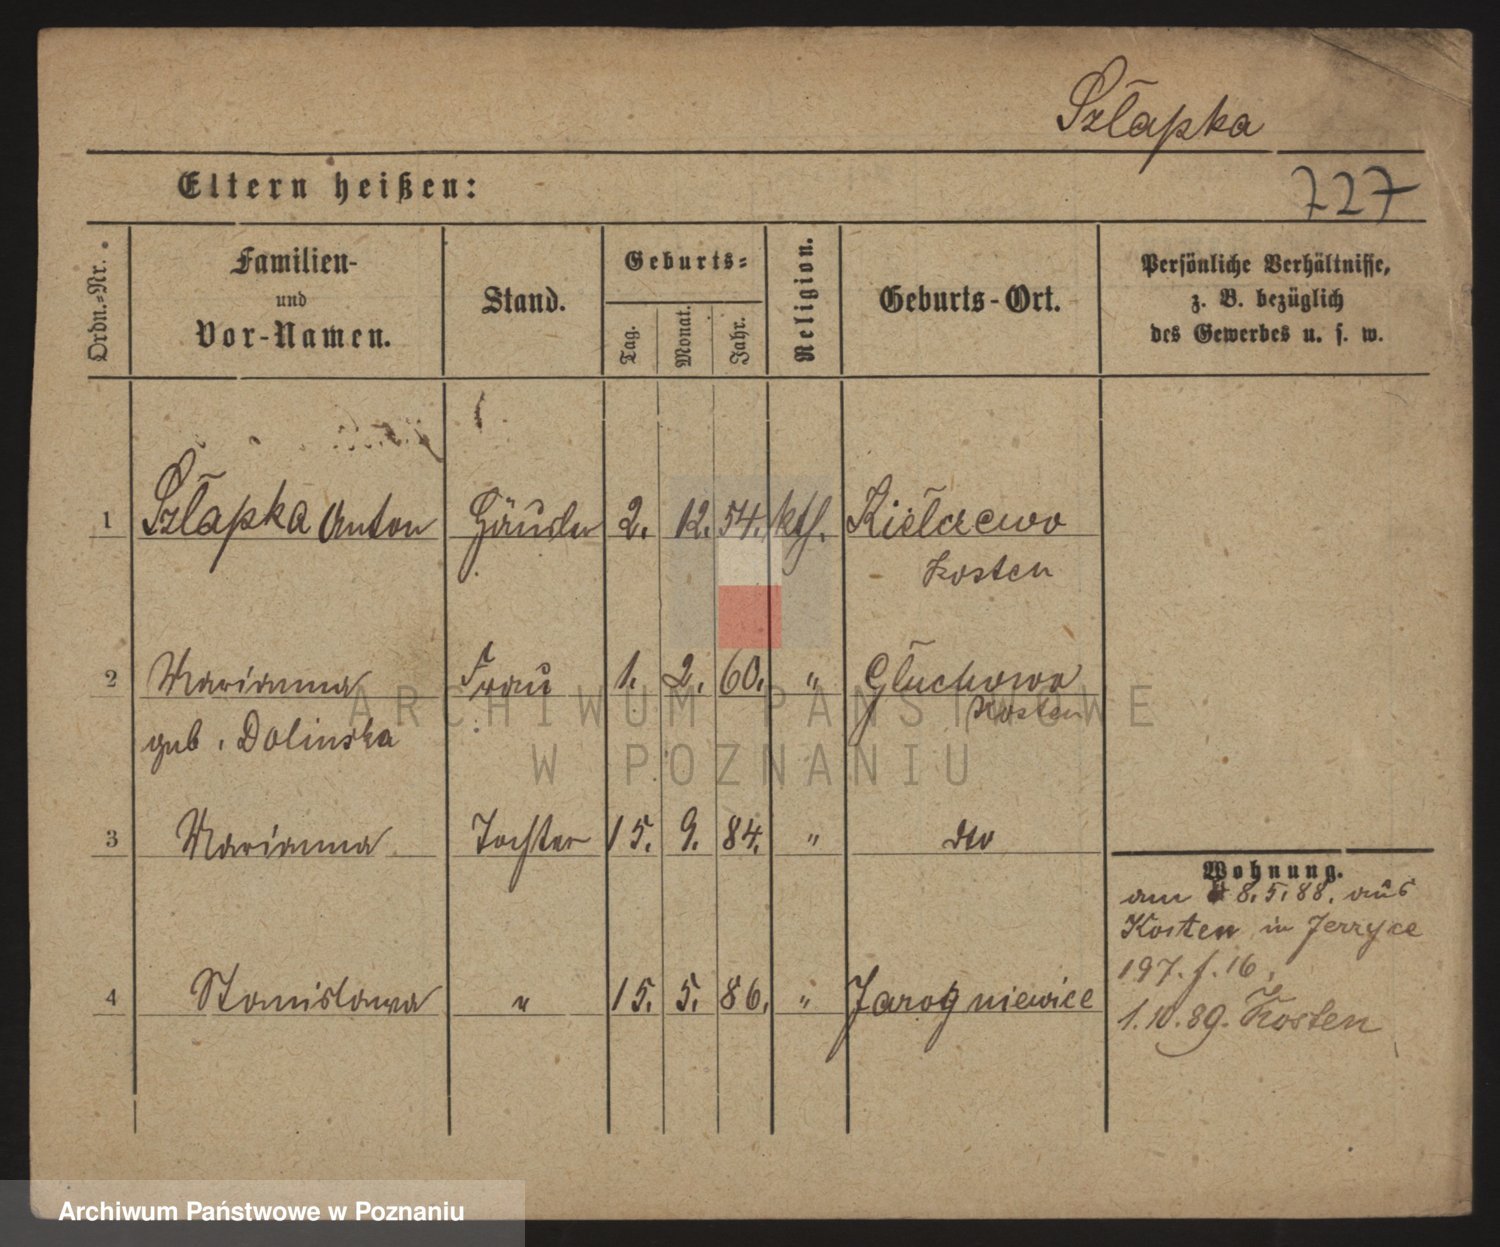 Szłapka
Eltern heißen:
727
Ordn.-Nr.
Familien-
und
Vor-Namen.
Stand.
Geburts-
Tag.
Monat.
Jahr.
Religion.
Geburts-Ort.
Persönliche Verhältnisse,
z. B. bezüglich
des Gewerbes u. s. w.
1 Szłapka Anton Häusler 2. 12. 54. kth. Kiełczewo
Kosten
2 Marianna Frau 1. 2. 60. " Głuchowo
Kosten
geb. Dolinska
3 Marianna Tochter 15. 9. 84. " dto
4 Stanislawa " 15. 5. 86. " Jarogniewice
Wohnung.
am 8.5.88. aus
Kosten in Jerzyce
197. f. 16.
1.10.89. Kosten
ARCHIWUM PAŃSTWOWE
W POZNANIU
Archiwum Państwowe w Poznaniu